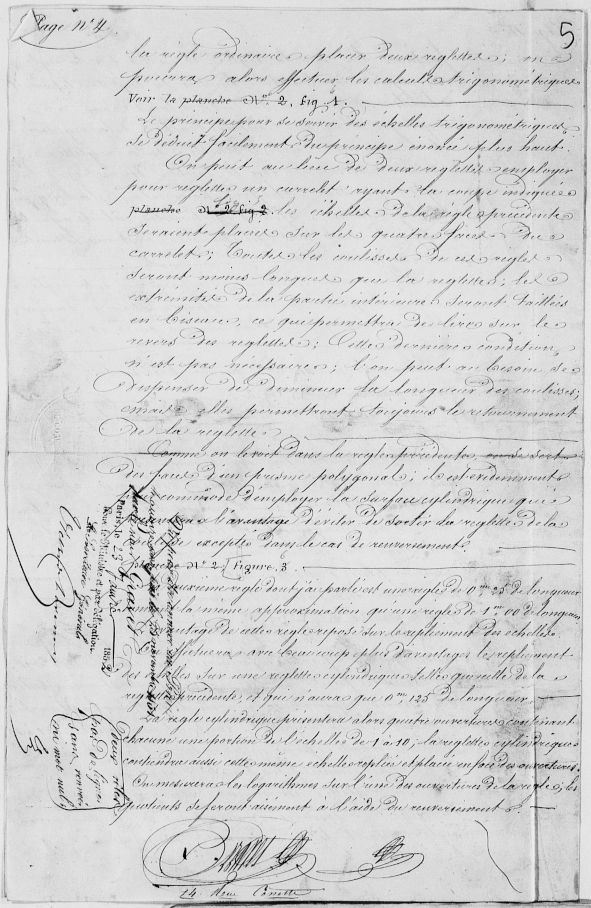 Page N° 4
5
la règle ordinaire placer deux reglettes; on
pourra alors effectuer les calculs trigonométriques
Voir la planche N° 2, fig. 1.
Le principe pour se servir des échelles trigonométriques
se déduit facilement du principe énoncé plus haut.
On peut au lieu de deux reglettes employer
pour reglettes un carrelet ayant la coupe indiquée
planche N° 2 fig 2. les échelles de la règle précédente
seraient placées sur les quatre faces du
carrelet; Toutes les coulisses de ces règles
seront moins longues que la reglette; les
extrémités de la partie intérieure seront taillées
en biseau, ce qui permettra de lire sur le
revers des reglettes; Cette dernière condition
n'est pas nécessaire; l'on peut au besoin se
dispenser de diminuer la longueur des coulisses;
mais elles permettront toujours le retournement
de la reglette.
Comme on le voit dans la règle précédente on se sert
des faces d'un prisme polygonal; il est évidemment
commode d'employer la surface cylindrique qui
l'avantage d'éviter de sortir la reglette de la
excepté dans le cas de renversement.
planche N° 2 figure 3.
deuxième règle dont j'ai parlé est une règle de 0m 25 de longueur
la même approximation qu'une règle de 1m 00 de longueur
de cette règle repose sur le reploiement des échelles
avec beaucoup plus d'avantages le reploiement
des sur une reglette cylindrique telle que celle de la
règle précédente et qui n'aura que 0m, 125 de longueur.
La règle cylindrique présentera alors quatre ouvertures contenant
chacune une portion de l'échelle de 1 à 10; la reglette cylindrique
contiendra aussi cette même échelle repliée et placée en face des ouvertures.
On mesurera les logarithmes sur l'une des ouvertures de la règle; les
produits se feront aisément à l'aide du renversement.
14. Rue
Paris, le 23 1852
Pour le Ministre et par délégation
Le Secrétaire Général
sans renvoi
ni mot nul